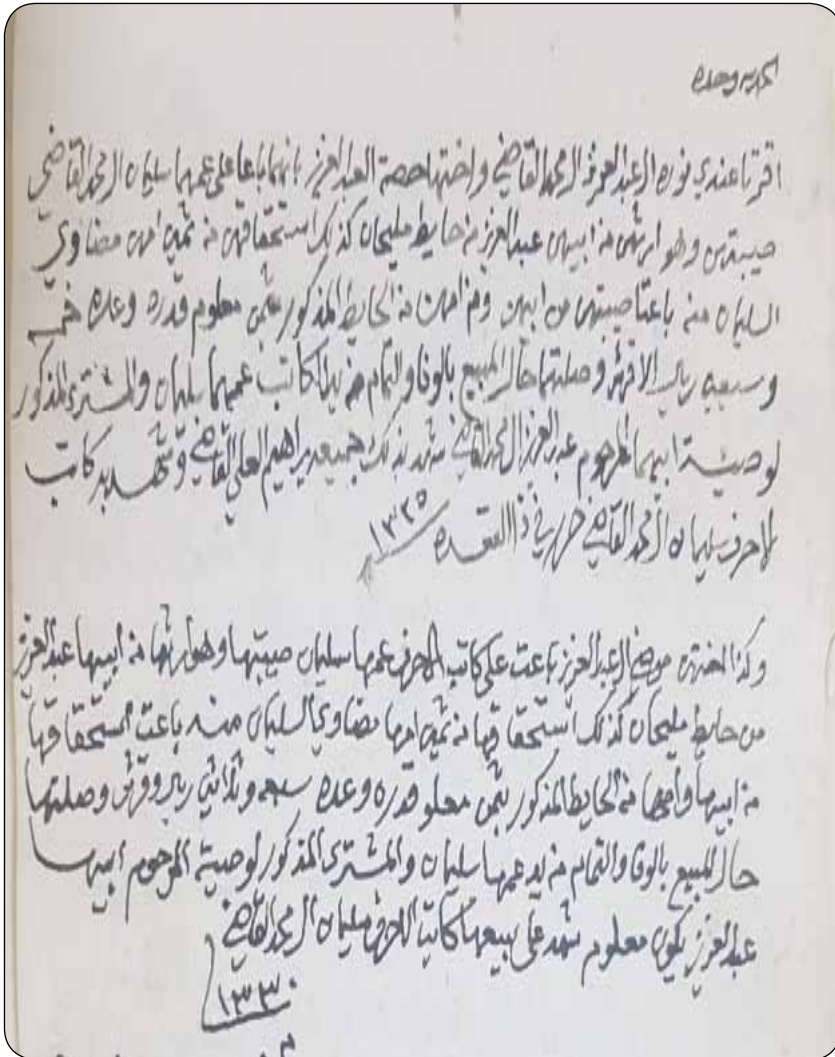 الحمد لله وحده
اقرتا عندي نوره العبدالعزيز المحمد القاضي واختها حصة العبدالعزيز بانهما باعا على عمهما سليمان المحمد القاضي
صيبتهن وهو ارثهن من ابيهن عبدالعزيز من حايط مليحان كذلك استحقاقهن من ثمين امهن مضاوي
السليمان منه باعتا صيبتهن من ابيهن ومن امهن من الحايط المذكور بثمن معلوم قدره وعده خمسه
وسبعين ريال الا قرش وصلتهما حال المبيع بالوفا والتمام من يد الكاتب عمهما سليمان والمشترى المذكور
لوصية ابيهما المرحوم عبدالعزيز المحمد القاضي شهد بذلك جميعه ابراهيم العلي القاضي وشهد به كاتب
الاحرف سليمان المحمد القاضي حرر في ذا القعده ١٣٢٥
وكذا اختهن موضي العبدالعزيز باعت على كاتب الاحرف عمها سليمان صيبتها وهو ارثها من ابيها عبدالعزيز
من حايط مليحان كذلك استحقاقها من ثمين امها مضاوي السليمان منه باعت استحقاقها
من ابيها وامها من الحايط المذكور بثمن معلوم قدره وعده سبعه وثلاثين ريال وقرش وصلتها
حال المبيع بالوفا والتمام من يد عمها سليمان والمشترى المذكور لوصية المرحوم ابيها
عبدالعزيز يكون معلوم شهد على بيعها كاتب الاحرف سليمان المحمد القاضي
١٣٣٠